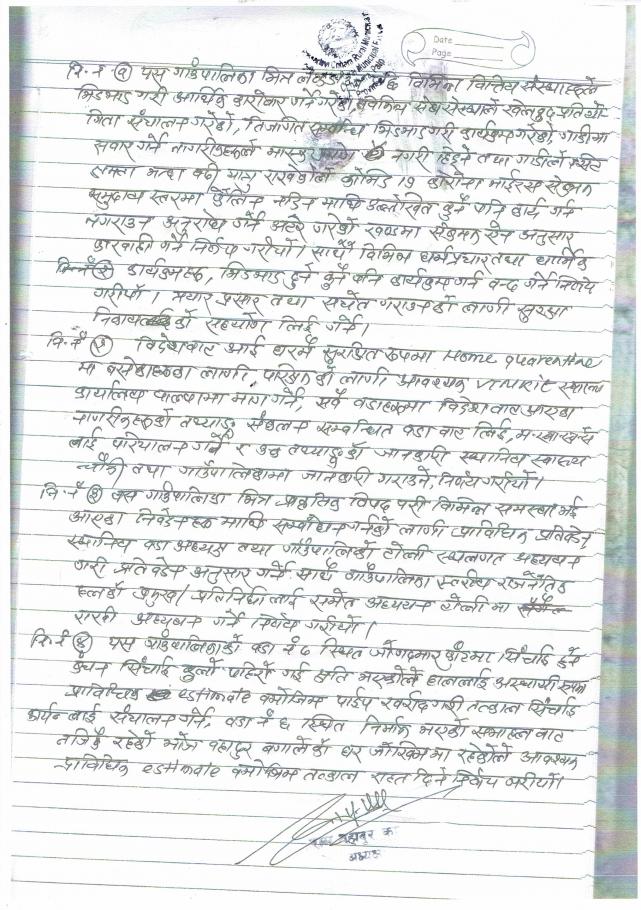 Date
Page
नि.नं ① यस गाउँपालिका भित्र विभिन्न वित्तिय संस्थाहरूले
भिडभाड गरी आर्थिक कारोबार गर्ने गरेको, विभिन्न संघसंस्थाले खेलकुद प्रतियो-
गिता संचालन गरेको, भिडभाड गरी कार्यक्रम गरेको, गाडीमा
सवार गर्ने नागरिकहरूले मास्क प्रयोग नगरी हिड्ने तथा गाडीले सिट
क्षमता भन्दा बढी यात्रु राखेकोले कोभिड 19 कोरोना भाईरस संक्रमण
समुदाय स्तरमा फैलिन नदिन माथि उल्लेखित कुनै पनि कार्य गर्न
नगराउन अनुरोध गर्ने अटेर गरेको खण्डमा संक्रमण ऐन अनुसार
कारवाही गर्ने निर्णय गरीयो। साथै विभिन्न धर्मप्रचार तथा धार्मिक
कार्यक्रमहरू, भिडभाड हुने कुनै पनि कार्यक्रम गर्न बन्द गर्ने निर्णय
गरीयो। प्रचार प्रसार तथा सचेत गराउनको लागी सुरक्षा
निकायको सहयोग लिई गर्ने।
नि.नं विदेशबाट आई घरमै सुरक्षित रूपमा Home quarentine
मा बसेकाहरूका लागी परिक्षणको लागी आवश्यक स्वास्थ्य
कार्यालय पाल्पामा माग गर्ने, सबै वडाहरूमा विदेश बाट आएका
नागरिकहरूको तथ्याङ्क संकलन सम्बन्धित वडा बाट लिई,
लाई परिचालन गर्ने र उक्त तथ्याङ्कको जानकारी स्थानिय स्वास्थ्य
चौकी तथा गाउँपालिकामा जानकारी गराउने, निर्णय गरीयो।
नि.नं यस गाउँपालिका भित्र प्राकृतिक विपद परी विभिन्न समस्या भई
आएका निवेदनहरू माथि सम्बोधन गर्नको लागी प्राविधिक प्रतिवेदन
स्थानिय वडा अध्यक्ष तथा गाउँपालिको टोली स्थलगत अध्ययन
गरी प्रतिवेदन अनुसार गर्ने साथै गाउँपालिका स्तरिय राजनैतिक
दलको प्रमुख/प्रतिनिधी लाई समेत अध्ययन टोली मा
राखी अध्ययन गर्ने निर्णय गरीयो।
नि.नं यस गाउँपालिकाको वडा नं ८ स्थित सिंचाई हुने
सिंचाई कुलो पहिरो गई क्षति भएकोले हाललाई अस्थायी रूपमा
प्राविधिक estimate बमोजिम पाईप खरीद गरी तत्काल सिंचाई
लाई संचालन गर्ने, वडा नं ६ स्थित निर्माण भएको सभाहल बाट
नजिकै रहेको बहादुर बगालेको घर जोखिममा रहेकोले आवश्यक
प्राविधिक estimate बमोजिम तत्काल राहत दिने निर्णय गरीयो।
अध्यक्ष